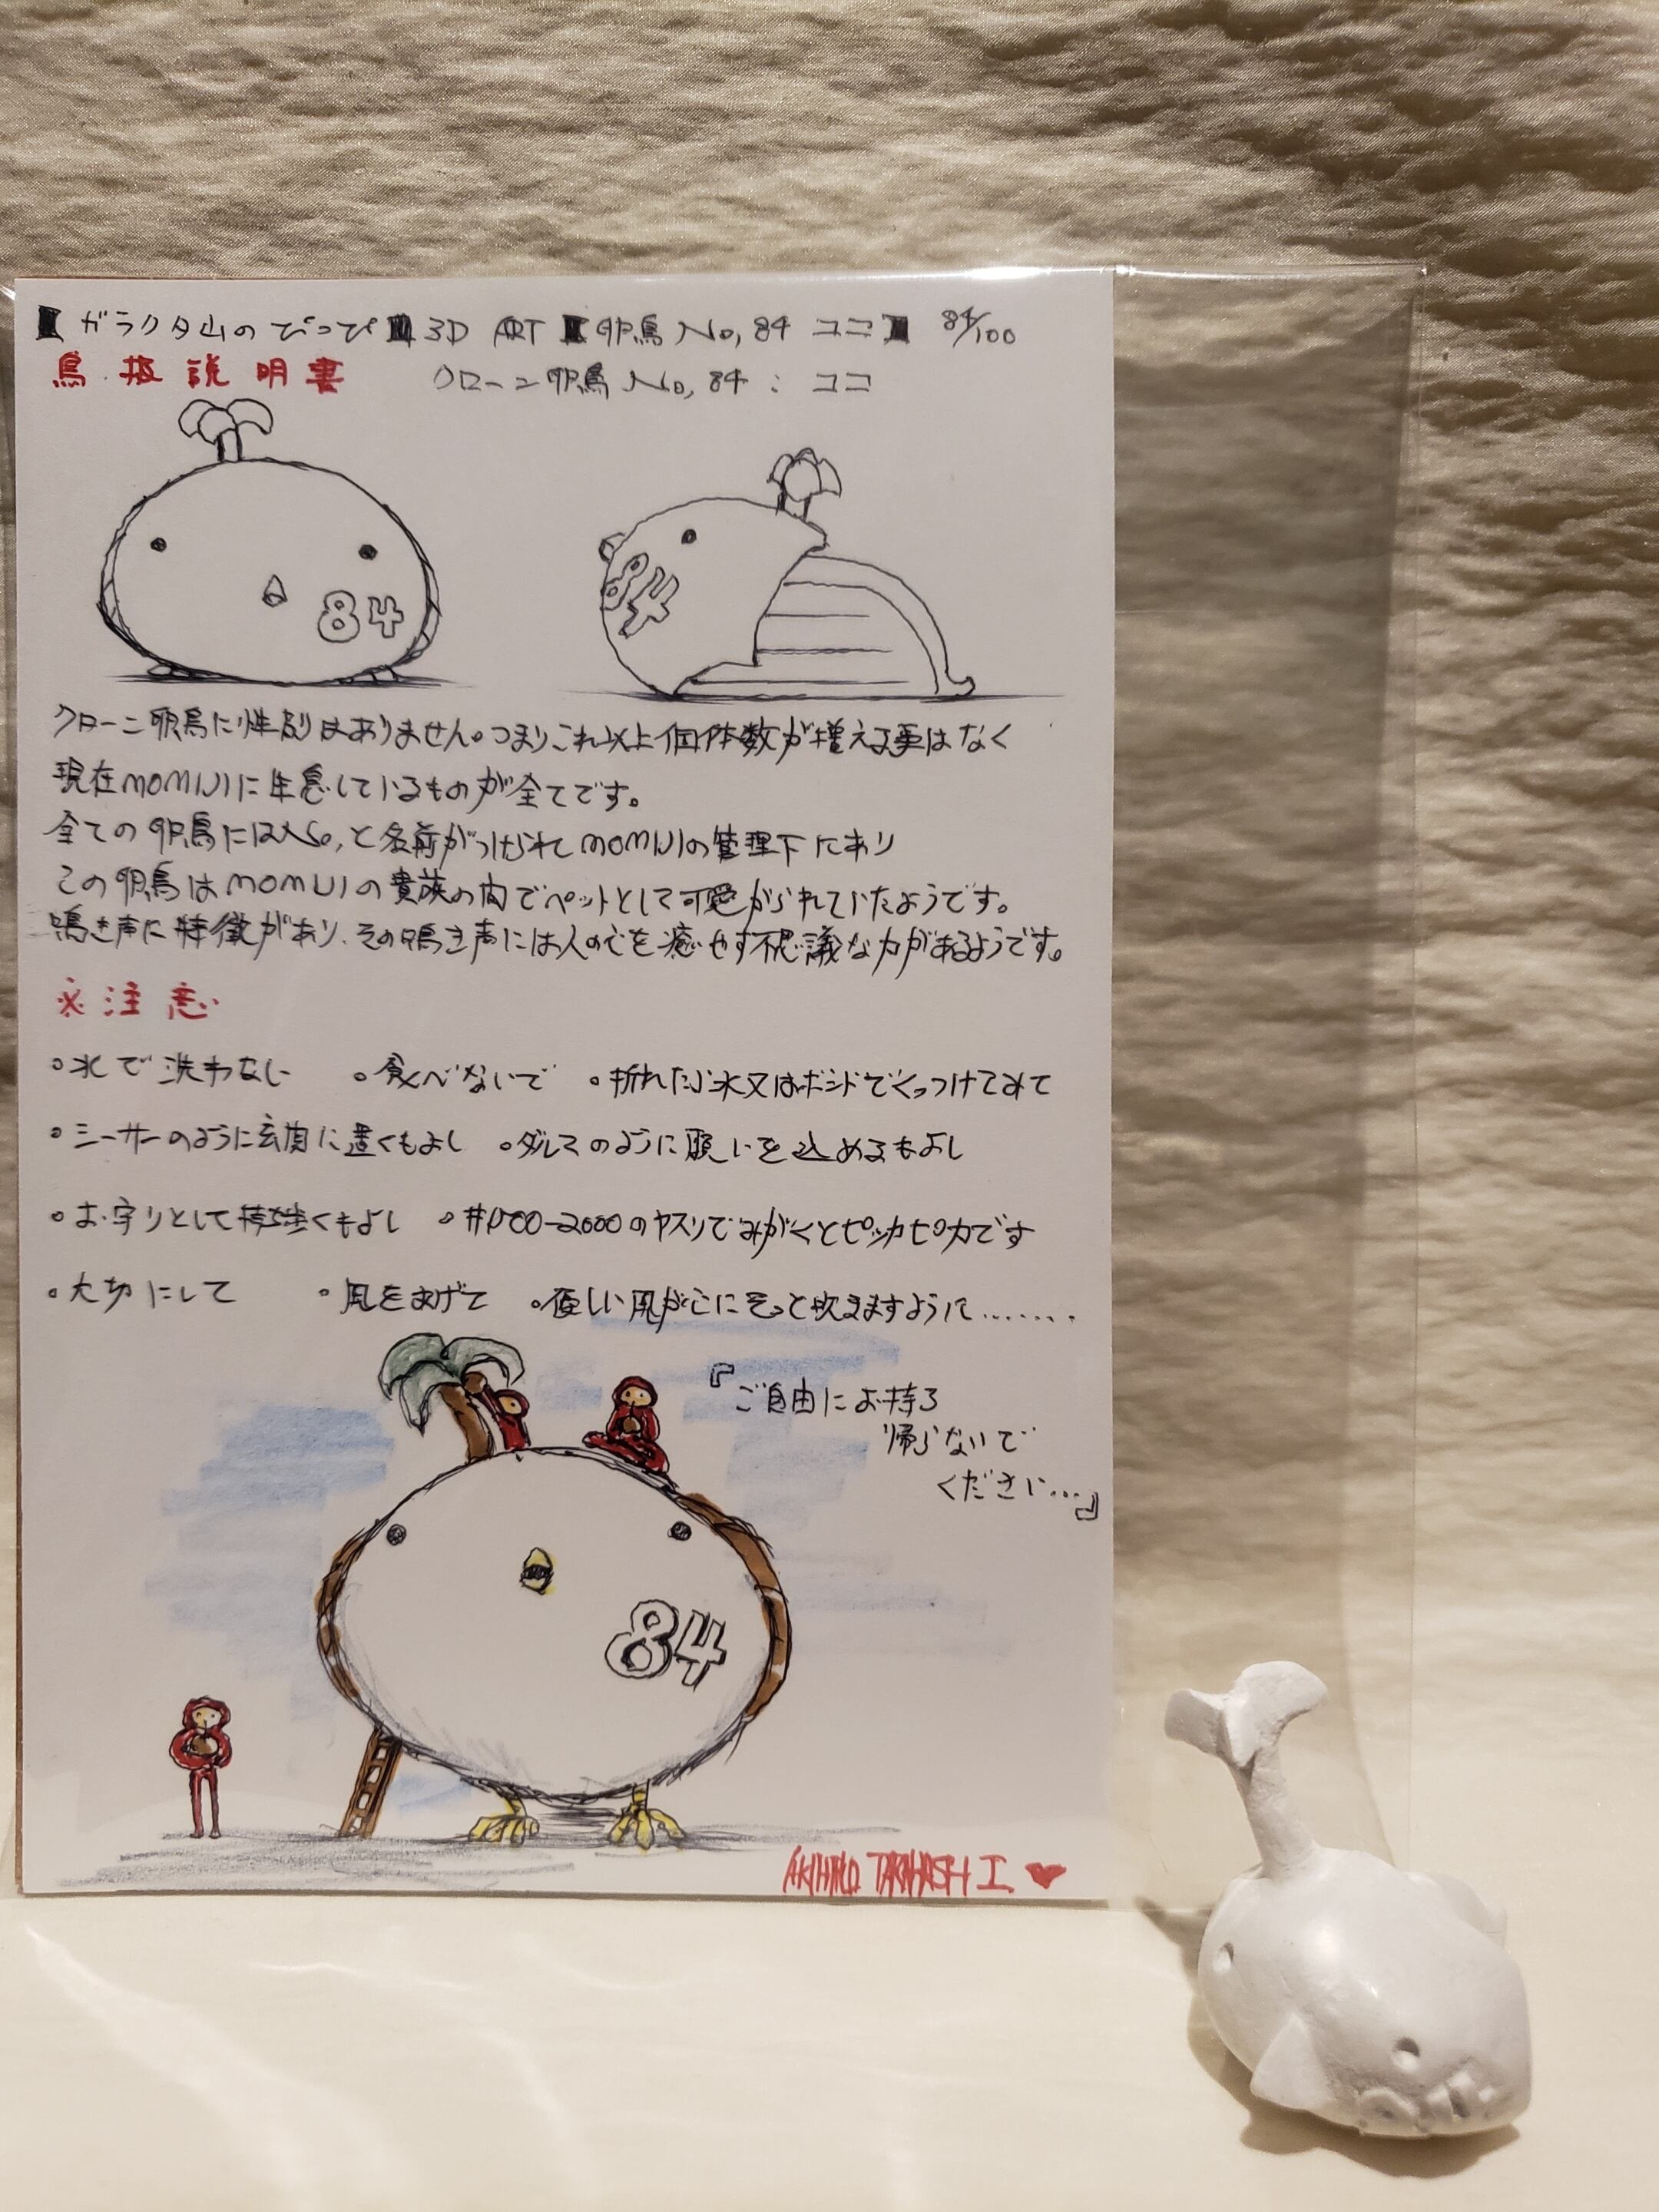 【ガラクタ山のぴっぴ】3D ART【卵鳥 No,84 ココ】 84/100
鳥扱説明書 クローン卵鳥 No,84 : ココ
84
84
クローン卵鳥に性別はありません。つまりこれ以上個体数が増える事はなく
現在MOMIJIに生息しているものが全てです。
全ての卵鳥にはNo,と名前がつけられてMOMIJIの管理下にあり
この卵鳥はMOMIJIの貴族の内でペットとして可愛がられていたようです。
鳴き声に特徴があり、その鳴き声には人の心を癒やす不思議な力があるようです。
※注意
・水で洗わない ・食べないで ・折れたら水又はボンドでくっつけてみて
・シーサーのように玄関に置くもよし ・ダルマのように願いを込めるもよし
・お守りとして持ち歩くもよし ・のヤスリでみがくとピッカピカです
・大切にして ・風をあげて ・優しい風が心にそっと吹きますように.......
『ご自由にお持ち
帰らないで
ください...』
84
AKIHIKO TAKAHASHI 工 ♥